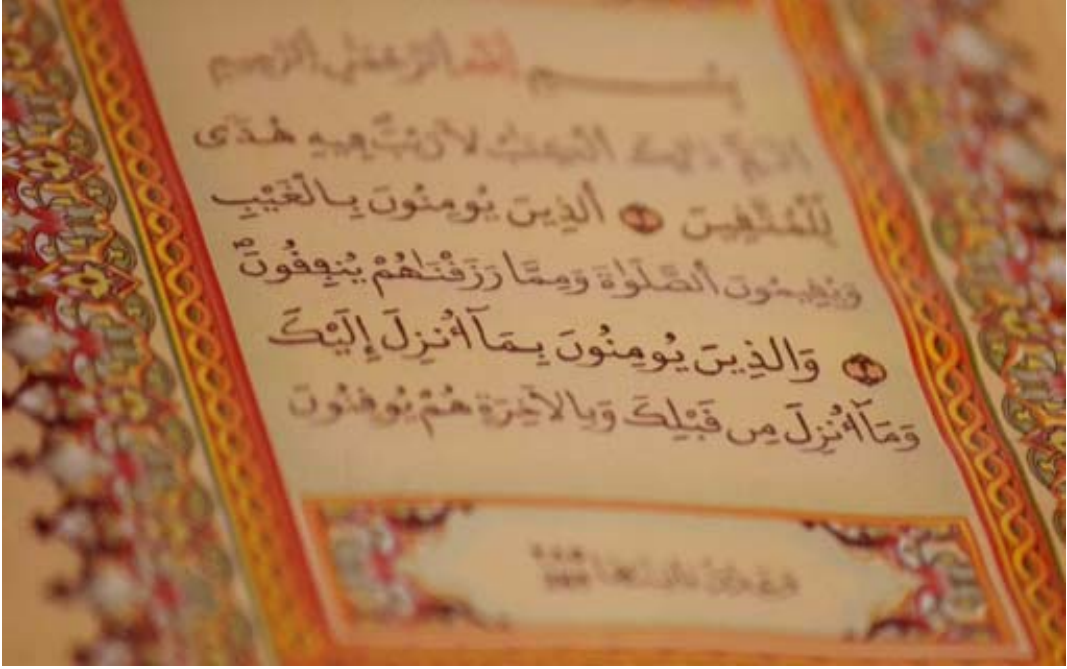 بِسْمِ اللَّهِ الرَّحْمَٰنِ الرَّحِيمِ
أَلَمِّ ذَٰلِكَ الْكِتَٰبُ لَا رَيْبَ فِيهِ هُدًى
لِّلْمُتَّقِينَ الذِينَ يُومِنُونَ بِالْغَيْبِ
وَيُقِيمُونَ الصَّلَوٰةَ وَمِمَّا رَزَقْنَٰهُمْ يُنفِقُونَ
وَالذِينَ يُومِنُونَ بِمَآ أُنزِلَ إِلَيْكَ
وَمَآ أُنزِلَ مِن قَبْلِكَ وَبِالَاخِرَةِ هُمْ يُوقِنُونَ